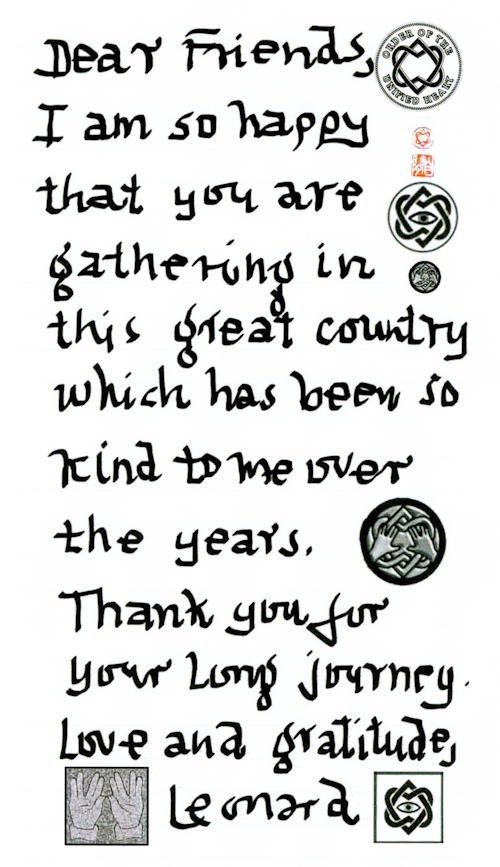 Dear Friends,
ORDER OF THE
UNIFIED HEART
I am so happy
that you are
gathering in
this great country
which has been so
kind to me over
the years.
Thank you for
your long journey.
Love and gratitude,
Leonard